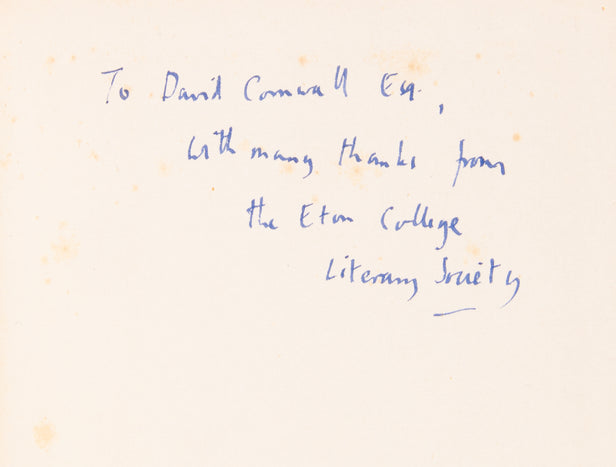 To David Cornwall Esq.,
with many thanks from
the Eton College
Literary Society